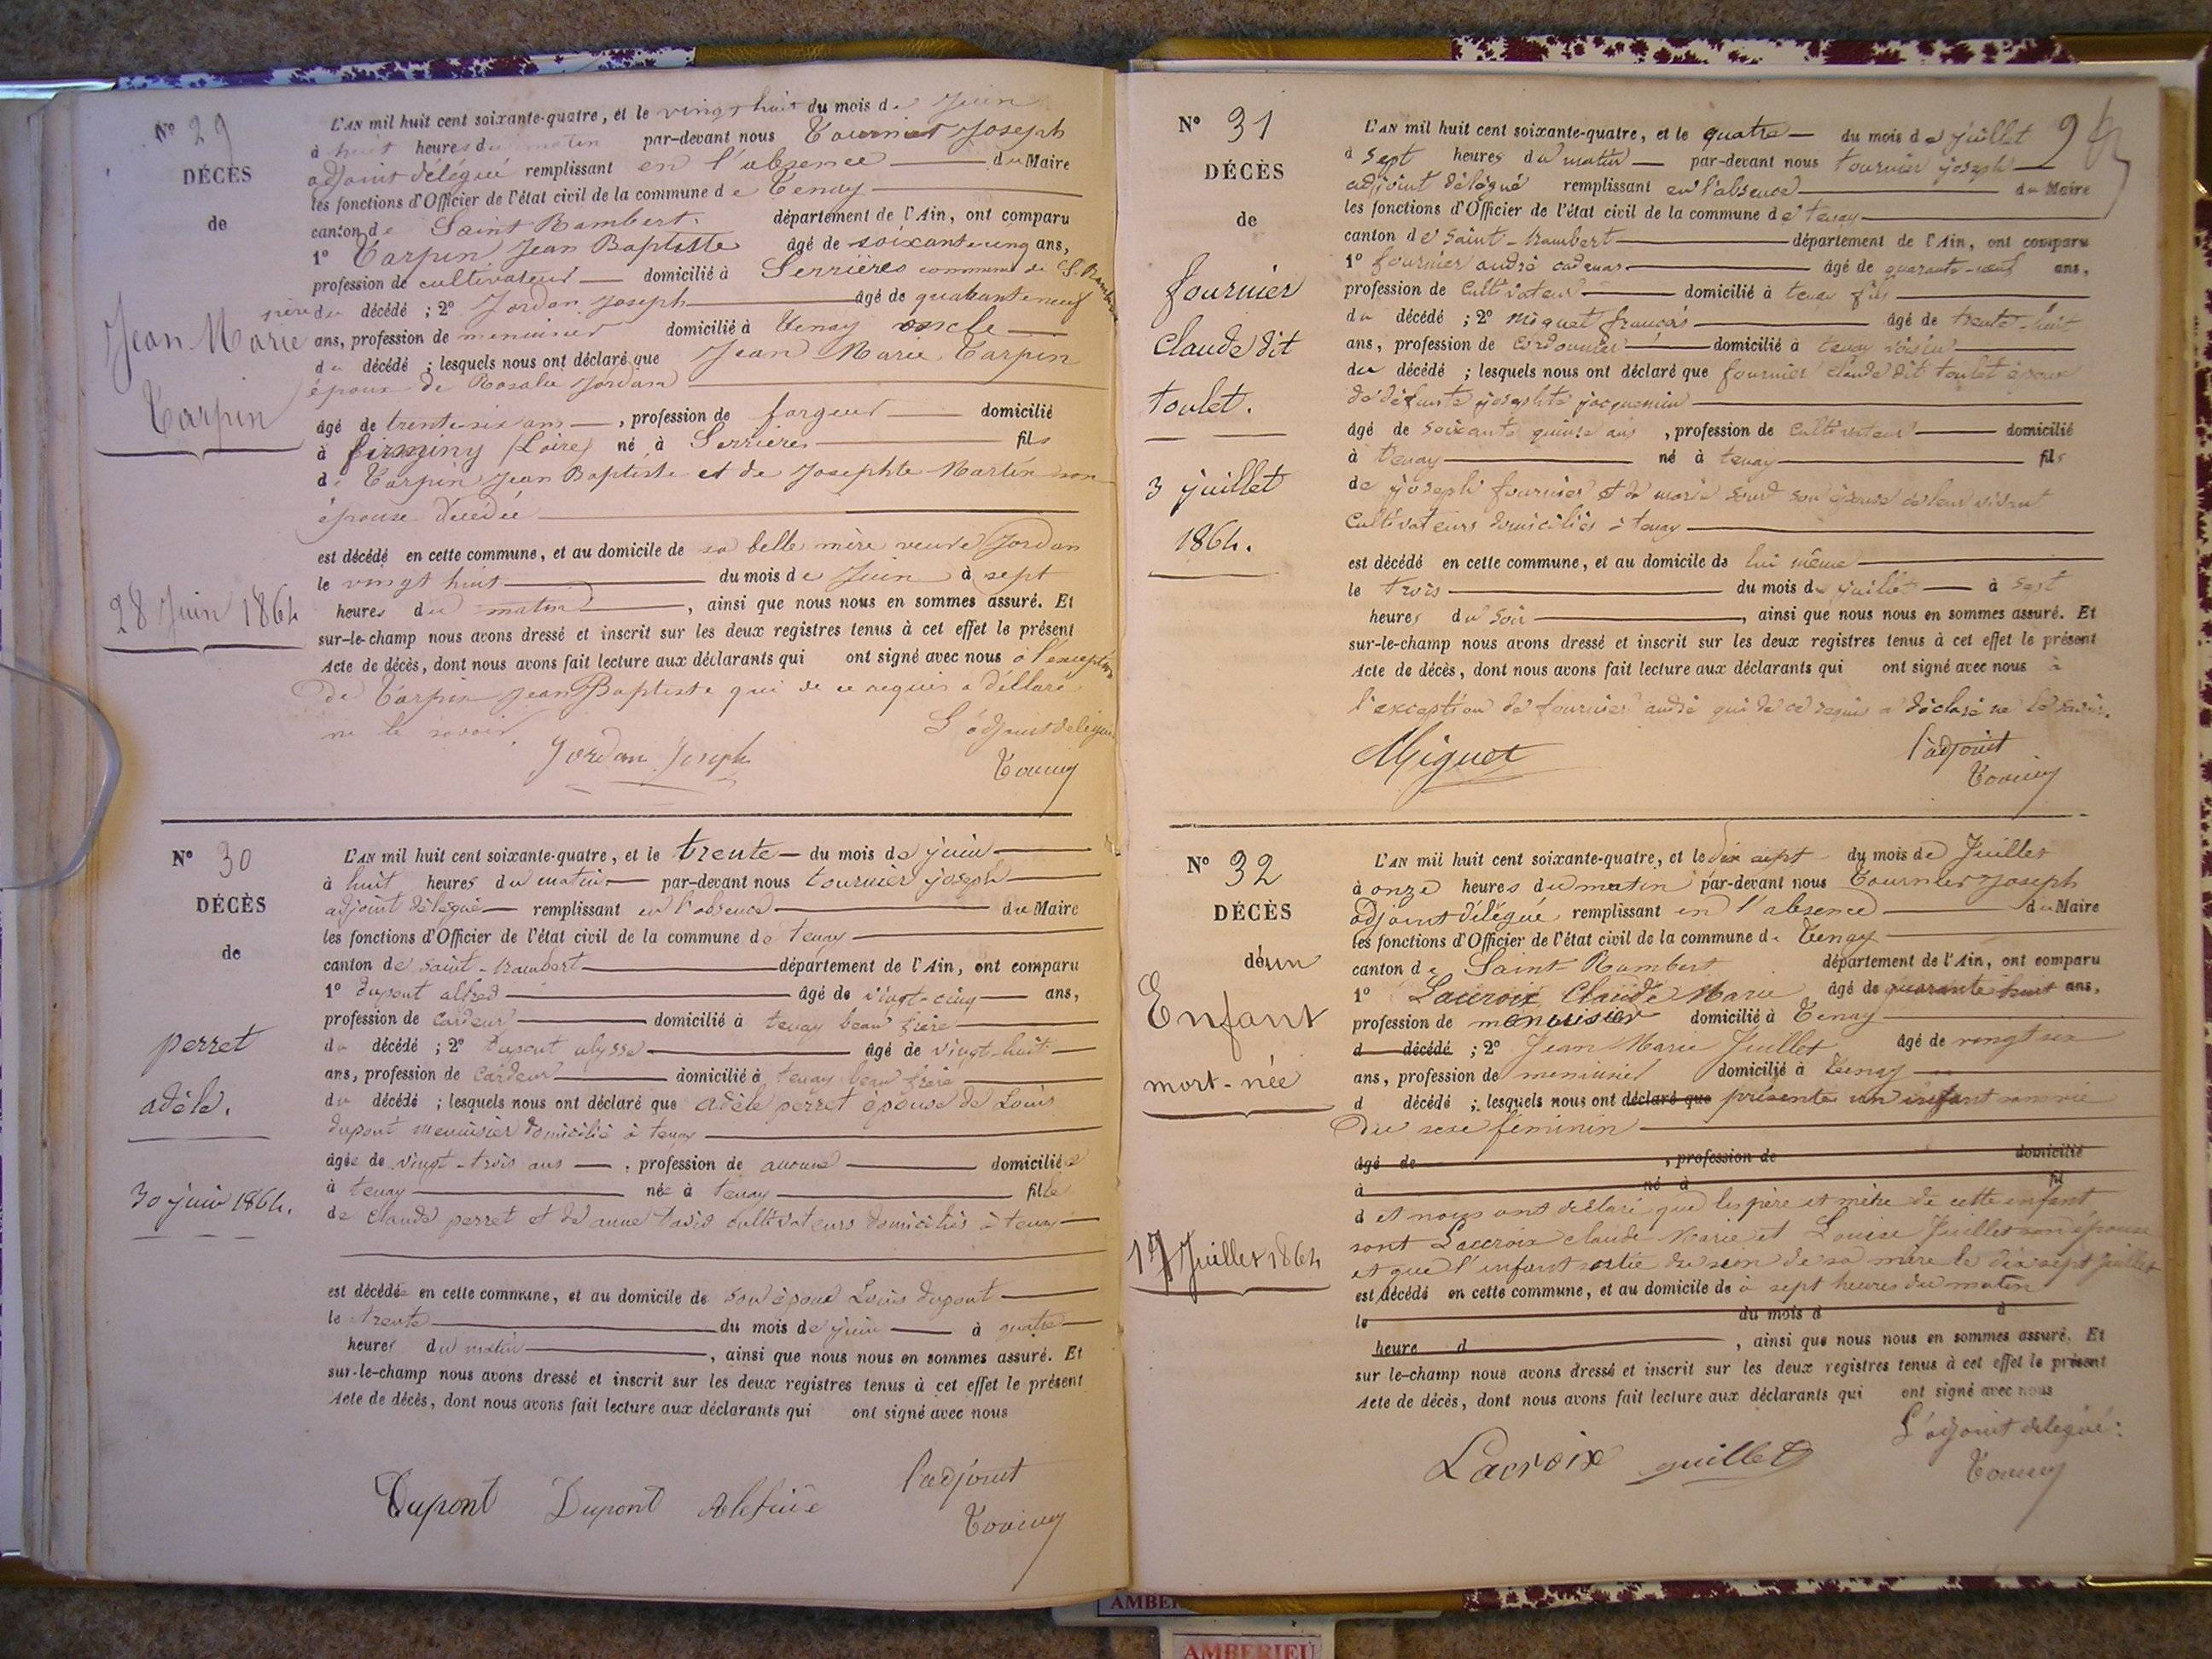 N° 29
DÉCÈS
de
Jean Marie
Tarpin
28 Juin 1864
L'AN mil huit cent soixante-quatre, et le vingt huit du mois de Juin
à huit heures du matin par-devant nous Tournier Joseph
adjoint délégué remplissant en l'absence du Maire
les fonctions d'Officier de l'état civil de la commune de Tenay
canton de Saint Rambert. département de l'Ain, ont comparu
1° Tarpin Jean Baptiste âgé de soixante cinq ans,
profession de cultivateur domicilié à Serrières commune de St. Rambert
père du décédé ; 2° Jordan Joseph âgé de quarante neuf
ans, profession de menuisier domicilié à Tenay oncle
du décédé ; lesquels nous ont déclaré que Jean Marie Tarpin
époux de Rosalie Jordan
âgé de trente six ans , profession de forgeur domicilié
à firminy (Loire) né à Serrières fils
de Tarpin Jean Baptiste et de Josephte Martin son
épouse décédée
est décédé en cette commune, et au domicile de sa belle mère veuve Jordan
le vingt huit du mois de Juin à sept
heures du matin , ainsi que nous nous en sommes assuré. Et
sur-le-champ nous avons dressé et inscrit sur les deux registres tenus à cet effet le présent
Acte de décès, dont nous avons fait lecture aux déclarants qui ont signé avec nous à l'exception
de Tarpin Jean Baptiste qui de ce requis a déllaré
ne le savoir
Jordan Joseph
L'adjoint délégué
N° 30
DÉCÈS
de
perret
adèle.
30 juin 1864.
L'AN mil huit cent soixante-quatre, et le trente du mois de juin
à huit heures du matin par-devant nous tournier joseph
adjoint délégué remplissant en l'absence du Maire
les fonctions d'Officier de l'état civil de la commune de tenay
canton de saint-rambert département de l'Ain, ont comparu
1° dupont alfred âgé de vingt-cinq ans,
profession de cardeur domicilié à tenay beau frère
du décédé ; 2° dupont ulysse âgé de vingt-huit
ans, profession de cardeur domicilié à tenay beau frère
du décédé ; lesquels nous ont déclaré que adèle perret épouse de Louis
dupont menuisier domicilié à tenay
âgée de vingt-trois ans , profession de aucune domiciliée
à tenay née à tenay fille
de claude perret et de anne cultivateurs domiciliés à tenay
est décédée en cette commune, et au domicile de son époux Louis dupont
le trente du mois de juin à quatre
heures du matin , ainsi que nous nous en sommes assuré. Et
sur-le-champ nous avons dressé et inscrit sur les deux registres tenus à cet effet le présent
Acte de décès, dont nous avons fait lecture aux déclarants qui ont signé avec nous
Dupont Dupont
l'adjoint
N° 31
DÉCÈS
de
fournier
claude dit
toulet.
3 juillet
1864.
L'AN mil huit cent soixante-quatre, et le quatre du mois de juillet
à sept heures du matin par-devant nous tournier joseph
adjoint délégué remplissant en l'absence du Maire
les fonctions d'Officier de l'état civil de la commune de tenay
canton de saint-rambert département de l'Ain, ont comparu
1° fournier andré âgé de quarante-neuf ans,
profession de cultivateur domicilié à tenay fils
du décédé ; 2° miguet françois âgé de trente-huit
ans, profession de cordonnier domicilié à tenay voisin
du décédé ; lesquels nous ont déclaré que fournier claude dit toulet époux
de défunte josephte jacquemin
âgé de soixante quinze ans , profession de cultivateur domicilié
à tenay né à tenay fils
de joseph fournier et de marie son épouse de leur vivant
cultivateurs domiciliés à tenay
est décédé en cette commune, et au domicile de lui même
le trois du mois de juillet à sept
heures du soir , ainsi que nous nous en sommes assuré. Et
sur-le-champ nous avons dressé et inscrit sur les deux registres tenus à cet effet le présent
Acte de décès, dont nous avons fait lecture aux déclarants qui ont signé avec nous à
l'exception de fournier andré qui de ce requis a déclaré ne le savoir.
Miguet
l'adjoint
N° 32
DÉCÈS
d'un
Enfant
mort-née
17 Juillet 1864
L'AN mil huit cent soixante-quatre, et le dix sept du mois de Juillet
à onze heures du matin par-devant nous Tournier Joseph
adjoint délégué remplissant en l'absence du Maire
les fonctions d'Officier de l'état civil de la commune de Tenay
canton de Saint-Rambert département de l'Ain, ont comparu
1° Lacroix Claude Marie âgé de quarante huit ans,
profession de menuisier domicilié à Tenay
d décédé ; 2° Jean Marie Juillet âgé de vingt six
ans, profession de menuisier domicilié à Tenay
d décédé ; lesquels nous ont déclaré que présenté un enfant sans vie
Du sexe féminin
âgé de , profession de domicilié
à né à fil
d et nous ont déclaré que les père et mère de cette enfant
sont Lacroix Claude Marie et Louise Juillet son épouse
et que l'enfant sortie du sein de sa mère le dix sept juillet
est décédé en cette commune, et au domicile de à sept heures du matin
le du mois d à
heure d , ainsi que nous nous en sommes assuré. Et
sur le-champ nous avons dressé et inscrit sur les deux registres tenus à cet effet le présent
Acte de décès, dont nous avons fait lecture aux déclarants qui ont signé avec nous
L'adjoint délégué:
Lacroix juillet
AMBERIEU